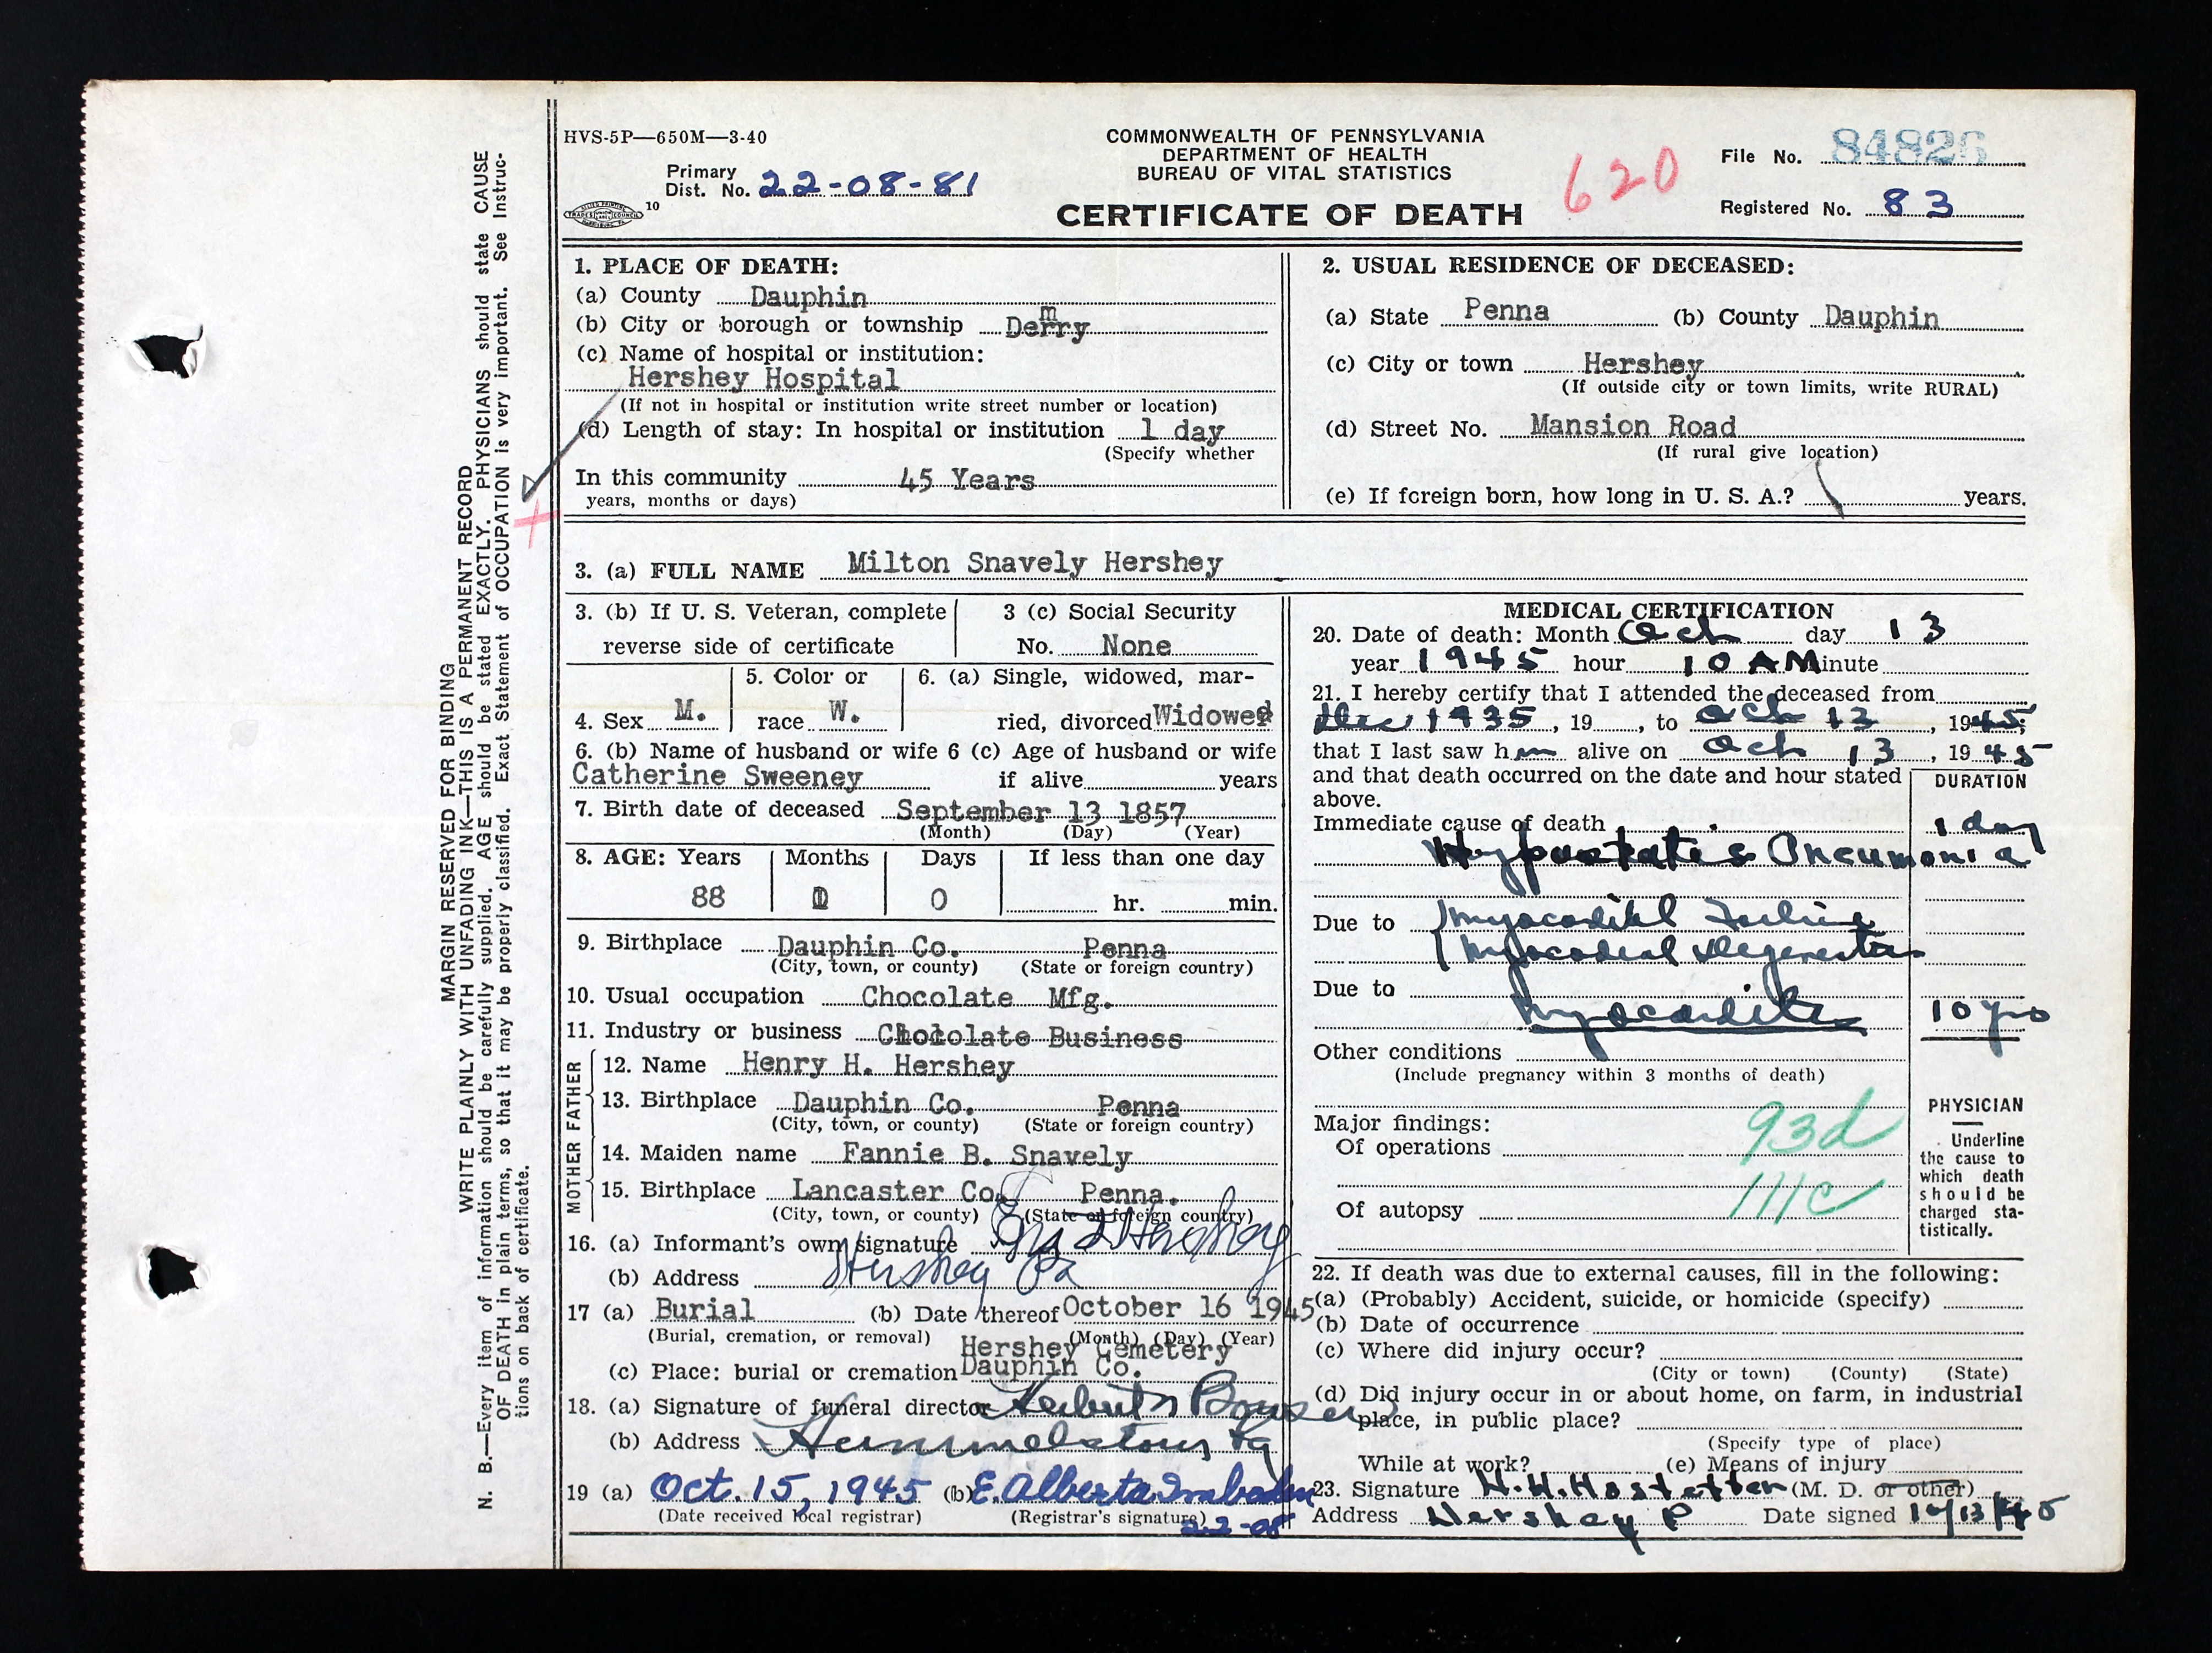 HVS-5P—650M—3-40
COMMONWEALTH OF PENNSYLVANIA
DEPARTMENT OF HEALTH
BUREAU OF VITAL STATISTICS
CERTIFICATE OF DEATH
620
Primary
Dist. No. 22-08-81
10
File No. 84826
Registered No. 83
MARGIN RESERVED FOR BINDING
WRITE PLAINLY WITH UNFADING INK—THIS IS A PERMANENT RECORD
N. B.—Every item of information should be carefully supplied. AGE should be stated EXACTLY. PHYSICIANS should state CAUSE
OF DEATH in plain terms, so that it may be properly classified. Exact Statement of OCCUPATION is very important. See Instruc-
tions on back of certificate.
1. PLACE OF DEATH:
(a) County Dauphin
(b) City or borough or township Derry
(c) Name of hospital or institution:
Hershey Hospital
(If not in hospital or institution write street number or location)
(d) Length of stay: In hospital or institution 1 day
(Specify whether
In this community 45 Years
years, months or days)
2. USUAL RESIDENCE OF DECEASED:
(a) State Penna (b) County Dauphin
(c) City or town Hershey
(If outside city or town limits, write RURAL)
(d) Street No. Mansion Road
(If rural give location)
(e) If foreign born, how long in U. S. A.? years.
3. (a) FULL NAME Milton Snavely Hershey
3. (b) If U. S. Veteran, complete
reverse side of certificate
3 (c) Social Security
No. None
4. Sex M.
5. Color or
race W.
6. (a) Single, widowed, mar-
ried, divorced Widowed
6. (b) Name of husband or wife 6 (c) Age of husband or wife
Catherine Sweeney if alive years
7. Birth date of deceased September 13 1857
(Month) (Day) (Year)
8. AGE: Years Months Days If less than one day
88 0 hr. min.
9. Birthplace Dauphin Co. Penna
(City, town, or county) (State or foreign country)
10. Usual occupation Chocolate Mfg.
11. Industry or business Chocolate Business
FATHER
12. Name Henry H. Hershey
13. Birthplace Dauphin Co. Penna
(City, town, or county) (State or foreign country)
MOTHER
14. Maiden name Fannie B. Snavely
15. Birthplace Lancaster Co. Penna.
(City, town, or county) (State or foreign country)
16. (a) Informant's own signature Hershey
(b) Address Hershey Pa
17 (a) Burial (b) Date thereof October 16 1945
(Burial, cremation, or removal) (Month) (Day) (Year)
Hershey Cemetery
(c) Place: burial or cremation Dauphin Co.
18. (a) Signature of funeral director
(b) Address Hummelstown Pa
19 (a) Oct. 15, 1945 (b) E. Alberta Imboden
(Date received local registrar) (Registrar's signature)
22-08
MEDICAL CERTIFICATION
20. Date of death: Month Oct day 13
year 1945 hour 10 AM Minute
21. I hereby certify that I attended the deceased from
Dec 1935, 19 , to Oct 13, 1945;
that I last saw him alive on Oct 13, 1945
and that death occurred on the date and hour stated
above.
DURATION
Immediate cause of death 1 day
Hypostatic Pneumonia
Due to Myocardial Failure
Myocardial Degeneration
Due to
Myocarditis 10 yrs
Other conditions
(Include pregnancy within 3 months of death)
Major findings:
Of operations 93d
Of autopsy 111c
PHYSICIAN
Underline
the cause to
which death
should be
charged sta-
tistically.
22. If death was due to external causes, fill in the following:
(a) (Probably) Accident, suicide, or homicide (specify)
(b) Date of occurrence
(c) Where did injury occur?
(City or town) (County) (State)
(d) Did injury occur in or about home, on farm, in industrial
place, in public place?
(Specify type of place)
While at work? (e) Means of injury
23. Signature H. H. Hostetter (M. D. or other)
Address Hershey P Date signed 10/13/45